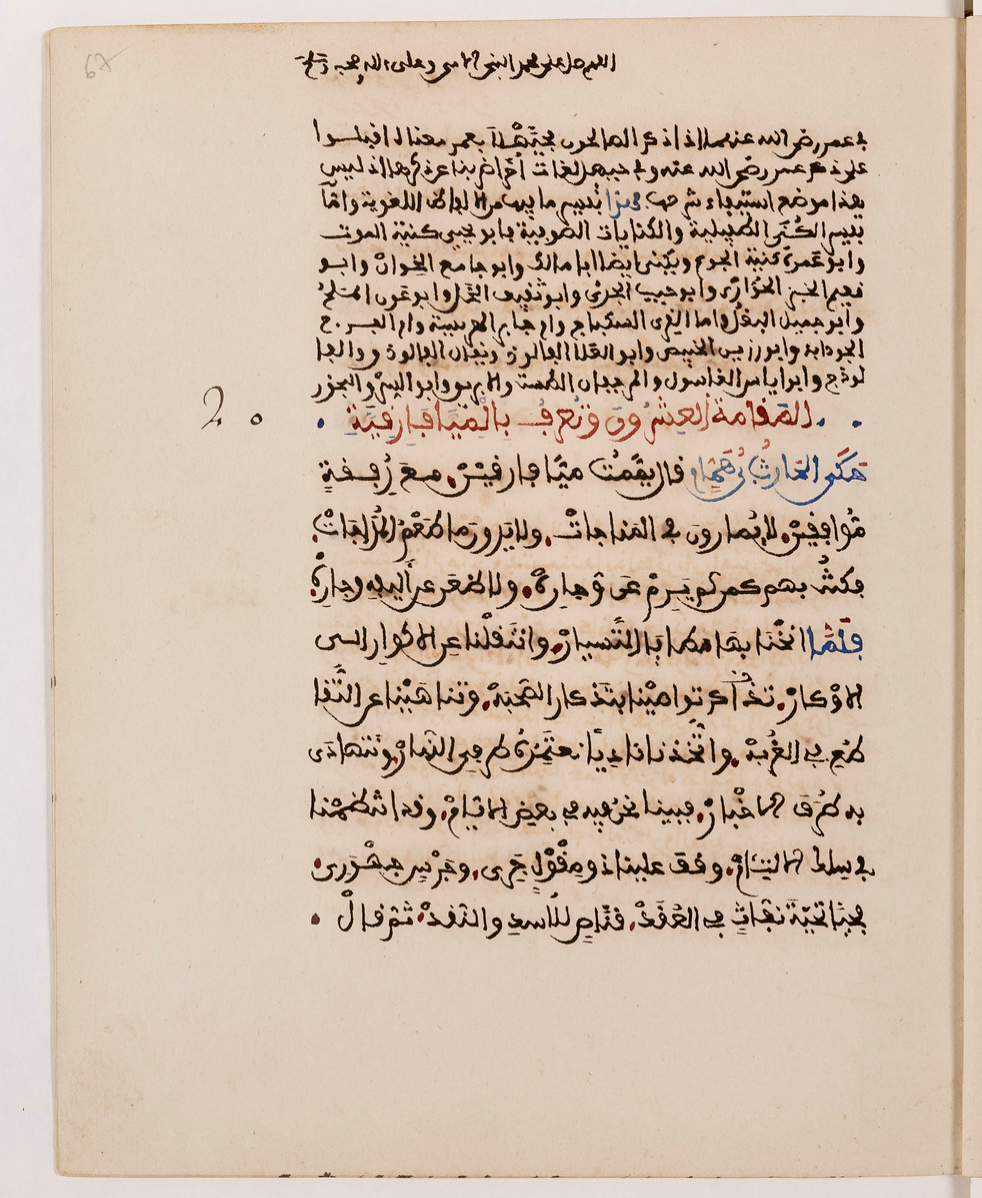 67
اللهم صل على محمد النبي الامي وعلى ءاله وصحبه وسلم
في عمر رضي الله عنهما اذا ذكر الصالحون فحيَّهلا بعمر معناه اقبلوا
على ذكر عمر رضي الله عنه وفي حيهل لغات أغراضنا عن ذكرها اذ ليس
هذا موضع استيفاء شرحها فهذا تفسير ما فيها من الالفاظ اللغوية وأمّا
تفسير الكُنَى الطفيلية والكنايات الصوفية فابو يحيى كنية الموت
وابو عَمرة كنية الجوع ويكنى ايضا ابا مالك وابو جامع الخِوانْ وابو
نعيم الخبز الحُوّارَى وابو حبيب الجدْي وابو ثقيف الخَل وابو عون الملحُ
وابو جميل البقل واما القرى السكباج وام جابر الهريسة وام الفرج
الجوذابة وابو رزين الخبيص وابو العلا الفالوذ وبعدان الفالوذ
وابو اياس الغاسول والمرجفان الطست والابريق وابو السرو البخور
المقامة العشرون وتعرف بالميافارقيّة
20
حَكَى الحارثُ بْنُ هَمّام قال يمّمْتُ ميّا فارقينْ. مع رُفقةٍ
مُوافِقينْ. لا يُمارونَ في المُناجاتْ. ولا يدرون ما طعْمُ المُداجاتْ.
فكنتُ بهم كمن لم يَرِمْ عن وَجارِهْ. ولا ظعن عن أليفه وجارِهْ.
فلَمّا أنَخْنا بها مطايا التَّسيارْ. وانتقلْنا عن الاكوارِ الى
الاوْكارْ. تواصيْنا بتذكار الصُّحبهْ. وتناهَيْنا عن التَّقا
طُعِ في الغُربهْ. واتَّخذنا ناديّا نعتمِرُهُ طرفي النّهارْ. ونتهادَى
به طُرَفَ الاخْبارْ. فبينا نحن فيه في بعض الايّامْ. وقد انتظمْنا
في سِلط الالتيامْ. وقف علينا ذو مِقْوَلٍ جَرِي. وجَرْسٍ جَهْوَري.
فحيّا تحيّة نفّاثٍ في العُقَدْ. قنّاصٍ للأسد والنّقدْ. ثم قالْ